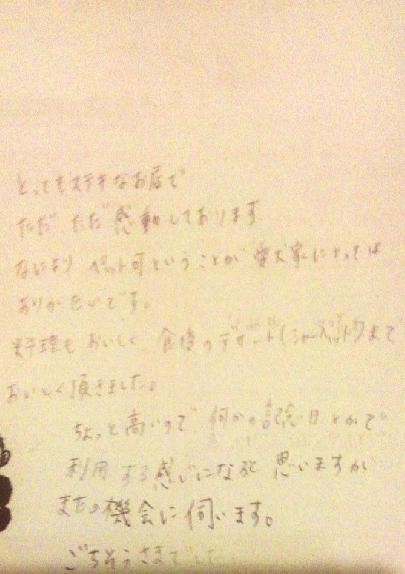 とってもステキなお店で
ただ ただ 感動しております
なにより ペット可ということが 愛犬家にとっては
ありがたいです。
料理も おいしく 食後のデザート(シャーベット)まで
おいしく頂きました。
ちょっと高いので 何かの記念日とかで
利用する感じになると思いますが
またの機会に伺います。
ごちそうさまでした